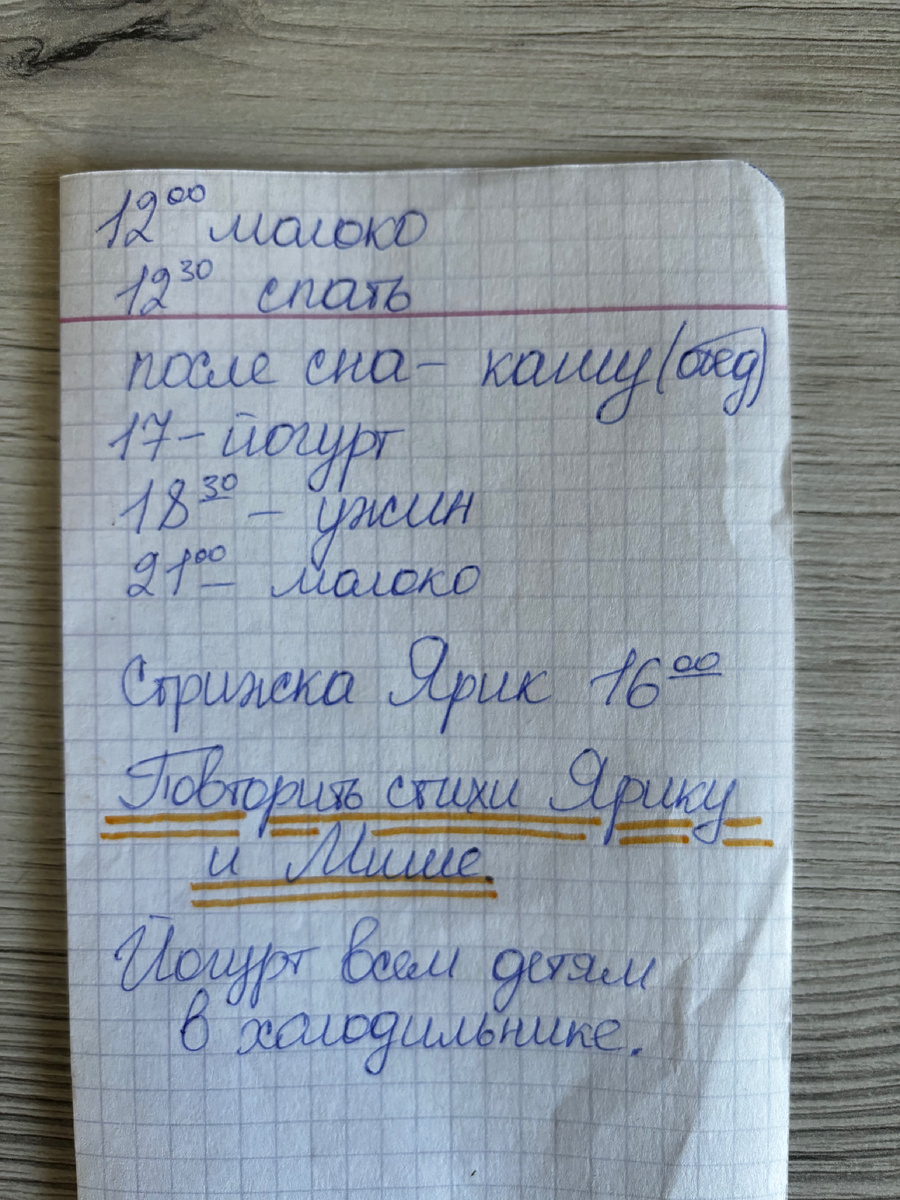 12⁰⁰ молоко
12³⁰ спать
после сна – кашу (обед)
17 – йогурт
18³⁰ – ужин
21⁰⁰ – молоко
Стрижка Ярик 16⁰⁰
Повторить стихи Ярику
и Мише.
Йогурт всем детям
в холодильнике.